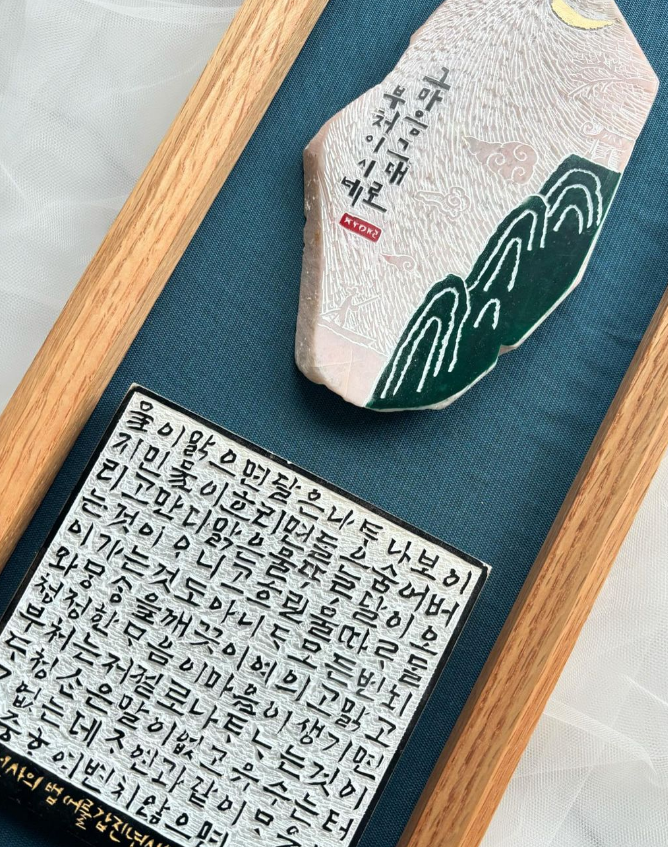 그마음그대로
부처이시네
물이맑으면달은나 나보이
지만물이흐리면 은숨어버
리고만다맑은물따 달이오
는것이 니고 린물따르
이가는것도아니 모든번뇌
와망상을깨끗이여의고맑고
청정한 음이마음이생기면
부처는저절로나 는것이
청산은말이없고유수는터
없는데 연과같이
여변치않으면
사의 법어를갑진년